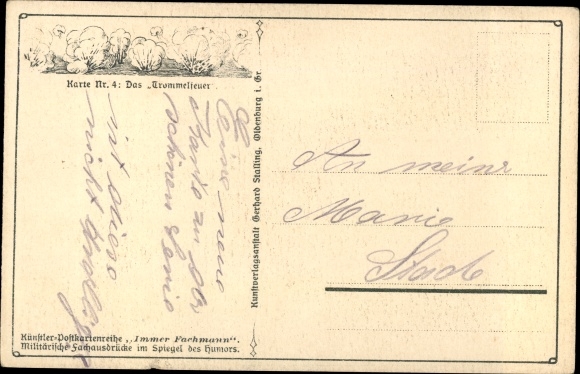 Karte Nr. 4: Das „Trommelfeuer
Eine neue
Karte zu der
schönen Serie
ist diese
nicht
Künstler-Postkartenreihe „Immer Fachmann“.
Militärische Fachausdrücke im Spiegel des Humors.
Kunstverlagsanstalt Gerhard Stalling, Oldenburg i. Gr
An meine
Marie
Stade